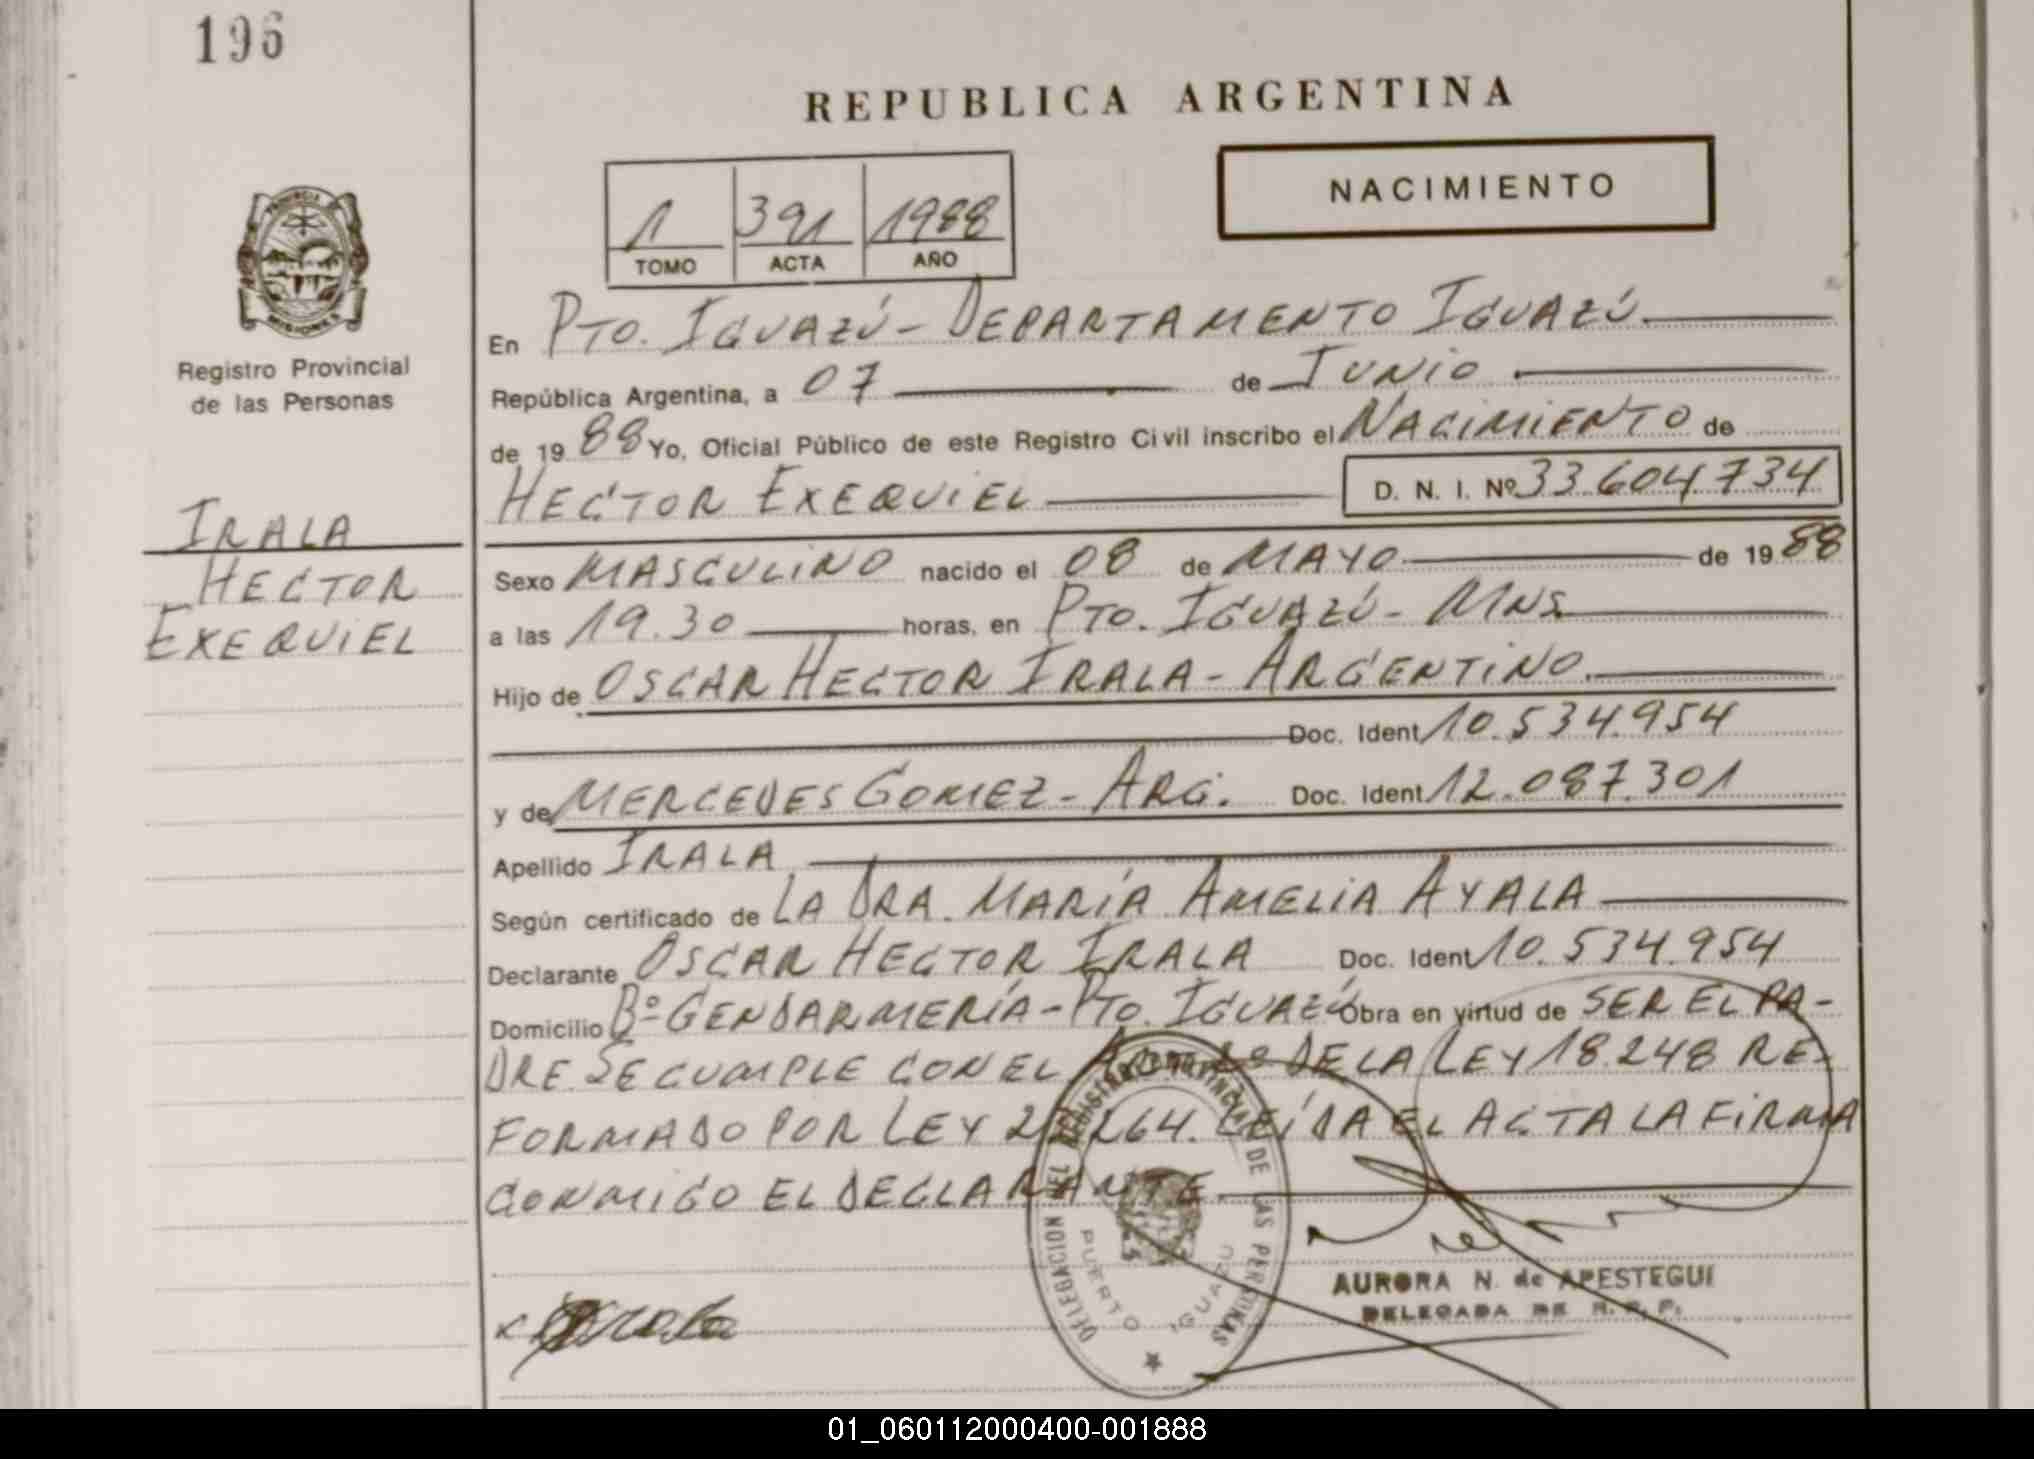 196
REPUBLICA ARGENTINA
NACIMIENTO
1 391 1988
TOMO ACTA AÑO
PROVINCIA
MISIONES
Registro Provincial
de las Personas
IRALA
HECTOR
EXEQUIEL
En PTO. IGUAZÚ - DEPARTAMENTO IGUAZÚ.
República Argentina, a 07 de JUNIO
de 19 88 Yo, Oficial Público de este Registro Civil inscribo el NACIMIENTO de
HECTOR EXEQUIEL D. N. I. Nº 33.604.734
Sexo MASCULINO nacido el 08 de MAYO de 19 88
a las 19.30 horas, en PTO. IGUAZÚ - MNS.
Hijo de OSCAR HECTOR IRALA - ARGENTINO.
Doc. Ident 10.534.954
y de MERCEDES GOMEZ - ARG. Doc. Ident 12.087.301
Apellido IRALA
Según certificado de LA DRA. MARÍA AMELIA AYALA
Declarante OSCAR HECTOR IRALA Doc. Ident 10.534.954
Domicilio Bº GENDARMERÍA - PTO. IGUAZÚ Obra en virtud de SER EL PA-
DRE. SE CUMPLE CON EL DE LA LEY 18.248 RE-
FORMADO POR LEY 264. LEÍDA EL ACTA LA FIRMA
CONMIGO EL DECLARANTE.
DELEGACION DEL REGISTRO PROVINCIAL DE LAS PERSONAS
PUERTO IGUAZU
AURORA N. de APESTEGUI
DELEGADA DE R. P. P.
x Irala
01_060112000400-001888